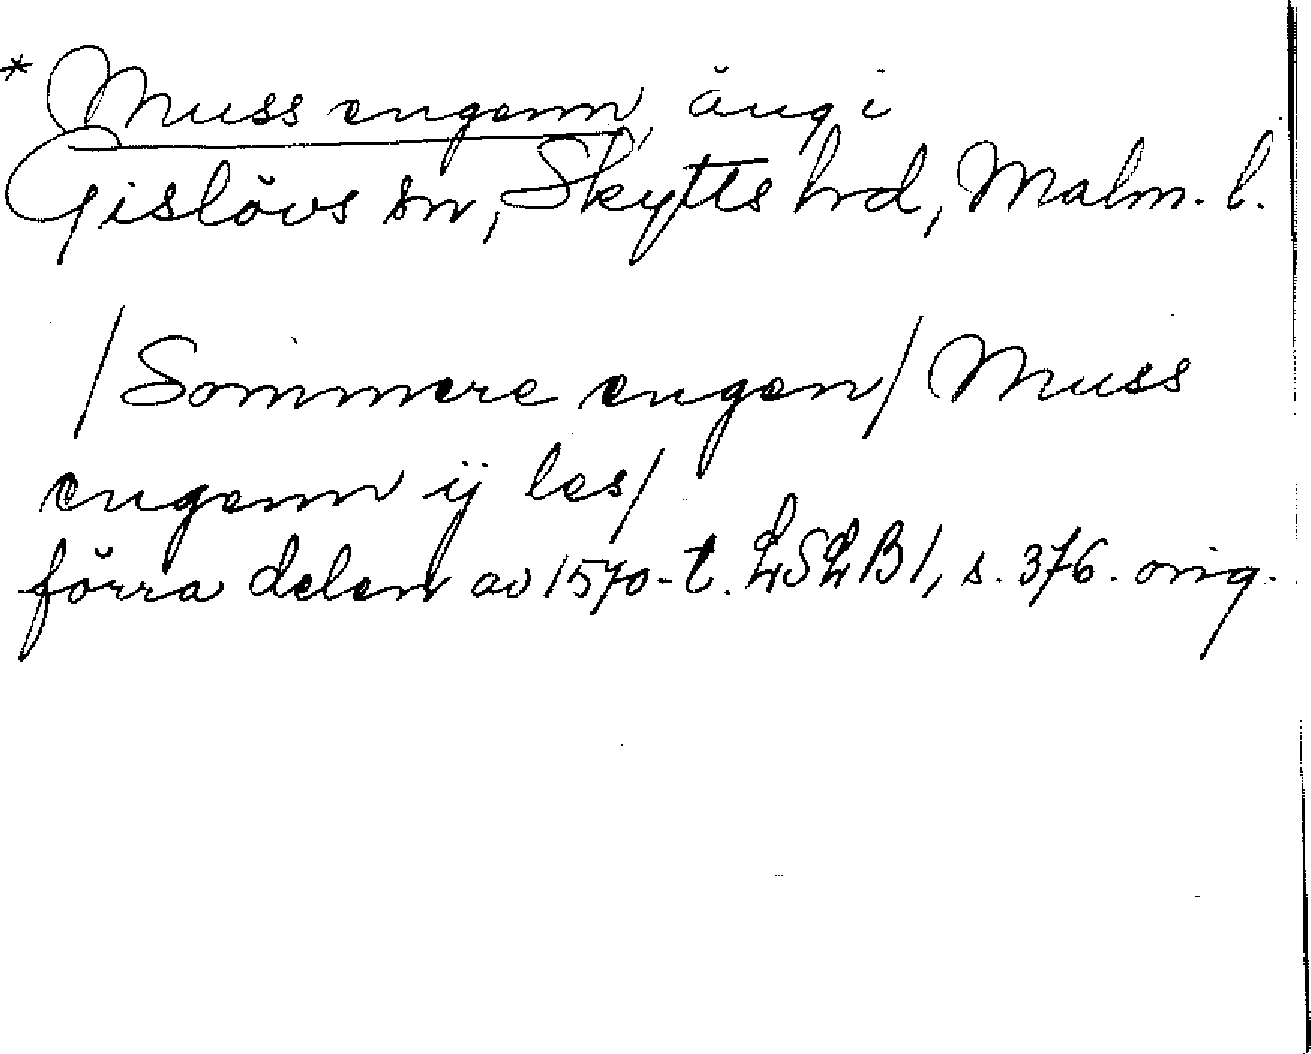 * Muss engenn, äng i
Gislövs sn, Skytts hrd, Malm. l.
/Sommere engen/ Muss
engenn ij les/
förra delen av 1570-t. LSLB1, s. 376. orig.